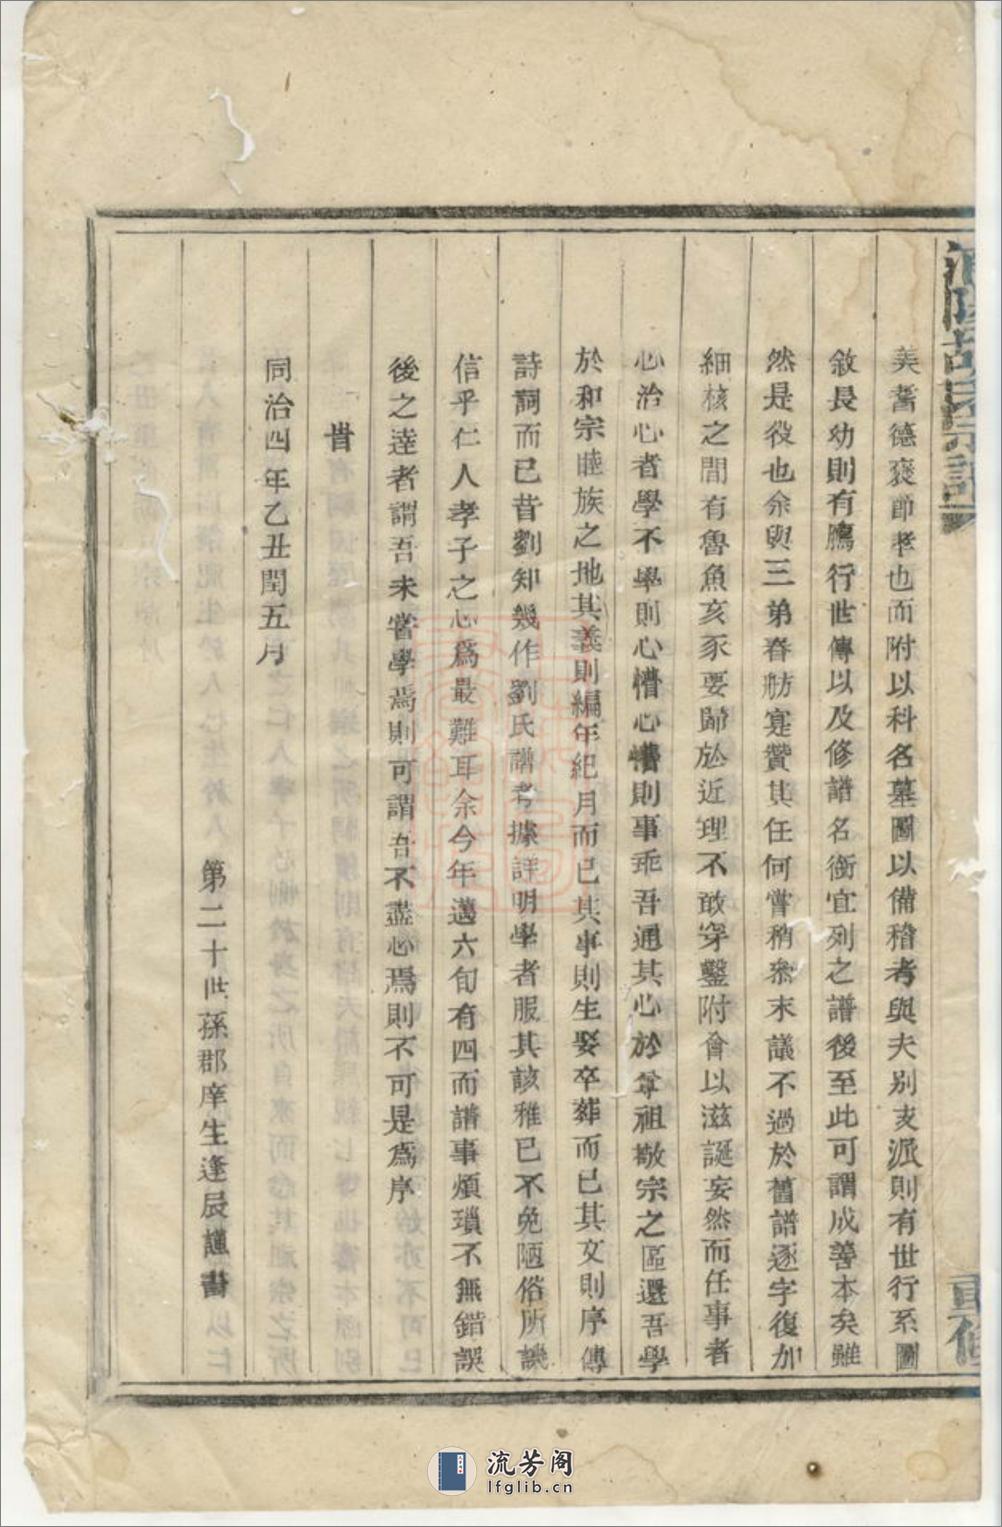 美耆德褒節孝也而附以科名墓圖以備稽考與夫別支派則有世行系圖
敘長幼則有鴈行世傳以及修譜名銜宜列之譜後至此可謂成善本矣雖
然是役也余與三弟春舫寔贊其任何嘗稍叅末議不過於舊譜逐字復加
細核之間有魯魚亥豕要歸於近理不敢穿鑿附會以滋誕妄然而任事者
心治心者學不學則心懵心懵則事乖吾通其心於尊祖敬宗之區還吾學
於和宗睦族之地其義則編年紀月而已其事則生娶卒葬而已其文則序傳
詩詞而已昔劉知幾作劉氏譜考據詳明學者服其該雅已不免陋俗所譏
信乎仁人孝子之心為最難耳余今年邁六旬有四而譜事煩瑣不無錯誤
後之達者謂吾未嘗學焉則可謂吾不盡心焉則不可是為序
旹
同治四年乙丑閏五月
第二十世孫郡庠生逢辰謹書
氏宗譜
重修
流芳阁
lfglib.cn